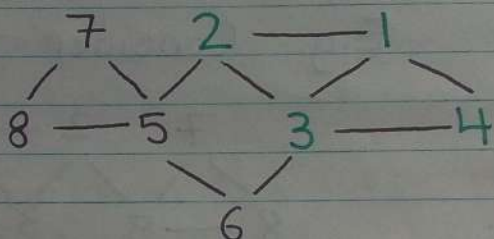 7 2 1
8 5 3 4
6